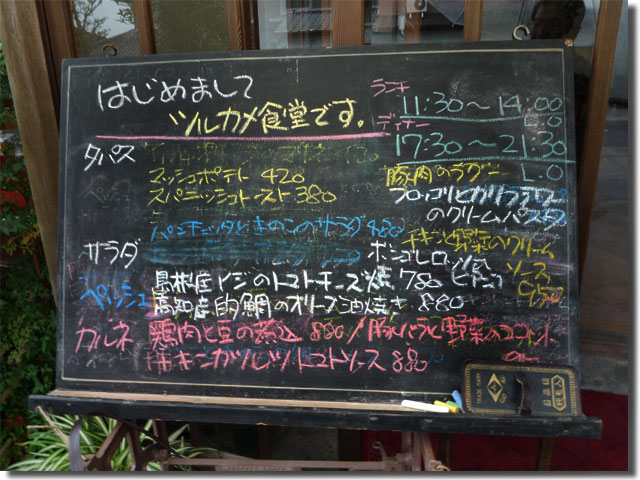 はじめまして
ツルカメ食堂です。
ランチ
11:30～14:00
L.O
ディナー
17:30～21:30
L.O
タパス
マッシュポテト 420
スパニッシュトースト 380
サラダ
パンチェッタときのこのサラダ 480
ペッシェ
島根産アジのトマトチーズ焼 780
高知産的鯛のオリーブ油焼き 880
カルネ
鶏肉と豆の煮込 880/豚バラと野菜の
チキンカツレツ トマトソース 880
豚肉のラグー
ブロッコリとカリフラワー
のクリームパスタ
チキンと野菜のクリーム
ソース
950
ボンゴレロッソ
TRADE MARK